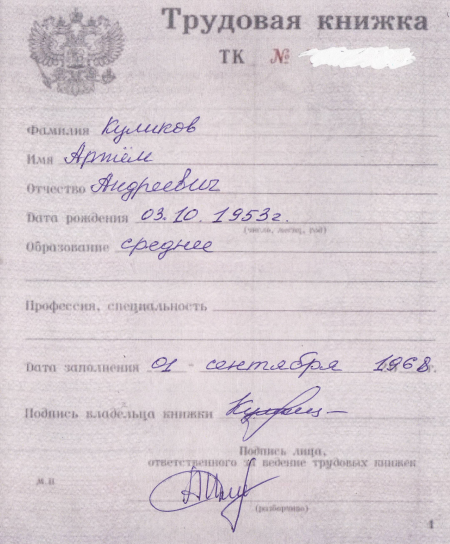 Трудовая книжка
ТК №
Фамилия Куликов
Имя Артём
Отчество Андреевич
Дата рождения 03.10.1953г.
(число, месяц, год)
Образование среднее
Профессия, специальность
Дата заполнения 01 сентября 1968.
Подпись владельца книжки
Подпись лица,
ответственного за ведение трудовых книжек
М.П.
(разборчиво)
1